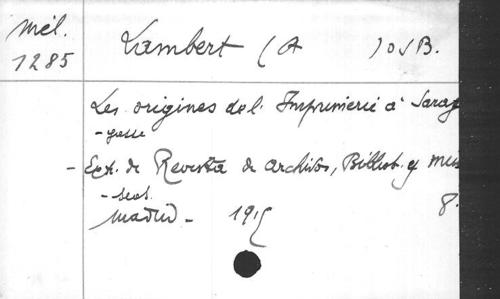 Mél.
1285
Lambert (A ) OSB.
Les origines de l'Imprimerie à Sarag
-gosse
- Ext. de Revista de Archivos, Bibliot. y Mus
- seos.
Madrid - 1915
8.